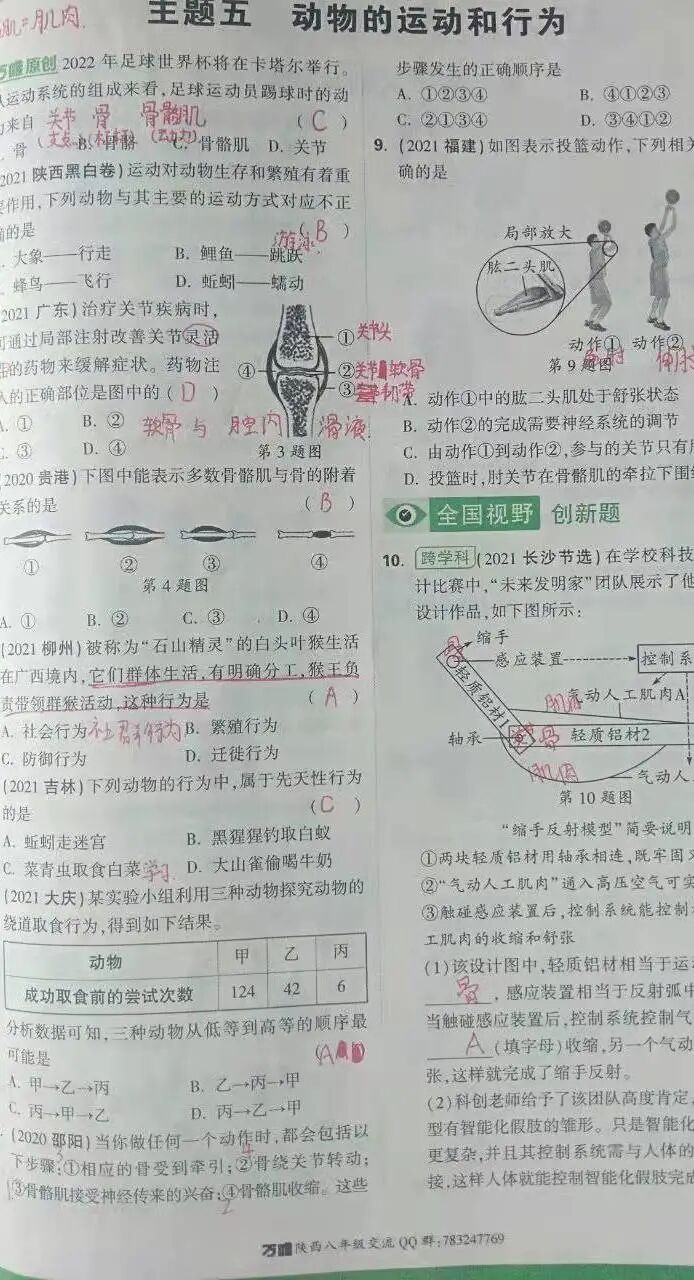 主题五 动物的运动和行为
肌=肌肉
万唯原创 2022年足球世界杯将在卡塔尔举行。
从运动系统的组成来看,足球运动员踢球时的动
力来自 关节 骨 骨骼肌 ( C )
骨 (支点) B. 骨骼 (杠杆) C. 骨骼肌 (动力) D. 关节
2021陕西黑白卷)运动对动物生存和繁殖有着重
要作用,下列动物与其主要的运动方式对应不正
确的是 ( B )
大象——行走 B. 鲤鱼——跳跃 游泳
蜂鸟——飞行 D. 蚯蚓——蠕动
2021广东)治疗关节疾病时,
可通过局部注射改善关节灵活
性的药物来缓解症状。药物注
入的正确部位是图中的( D )
. ① B. ②
. ③ D. ④
软骨与 腔内 滑液
①关节头
②关节软骨
③韧带
④
第3题图
(2020贵港)下图中能表示多数骨骼肌与骨的附着
关系的是 ( B )
① ② ③ ④
第4题图
A. ① B. ② C. ③ D. ④
(2021柳州)被称为“石山精灵”的白头叶猴生活
在广西境内,它们群体生活,有明确分工,猴王负
责带领群猴活动,这种行为是 ( A )
A. 社会行为 社群行为 B. 繁殖行为
C. 防御行为 D. 迁徙行为
(2021吉林)下列动物的行为中,属于先天性行为
的是 ( C )
A. 蚯蚓走迷宫 B. 黑猩猩钓取白蚁
C. 菜青虫取食白菜 学习 D. 大山雀偷喝牛奶
(2021大庆)某实验小组利用三种动物探究动物的
绕道取食行为,得到如下结果。
动物 甲 乙 丙
成功取食前的尝试次数 124 42 6
分析数据可知,三种动物从低等到高等的顺序最
可能是 ( A )
A. 甲→乙→丙 B. 乙→丙→甲
C. 丙→甲→乙 D. 丙→乙→甲
(2020邵阳)当你做任何一个动作时,都会包括以
下步骤:①相应的骨受到牵引;②骨绕关节转动;
③骨骼肌接受神经传来的兴奋;④骨骼肌收缩。这些
3 4
2
步骤发生的正确顺序是
A. ①②③④ B. ④①②③
C. ②①③④ D. ③④①②
9. (2021福建)如图表示投篮动作,下列相关
确的是
局部放大
肱二头肌
动作① 动作②
第9题图
A. 动作①中的肱二头肌处于舒张状态
B. 动作②的完成需要神经系统的调节
C. 由动作①到动作②,参与的关节只有
D. 投篮时,肘关节在骨骼肌的牵拉下围绕
全国视野 创新题
10. 跨学科 (2021长沙节选)在学校科技
计比赛中,“未来发明家”团队展示了他
设计作品,如下图所示:
缩手
感应装置 控制系
骨
轻质铝材1
气动人工肌肉A
肌肉
轴承 轻质铝材2
骨
肌肉
气动人
第10题图
“缩手反射模型”简要说明
①两块轻质铝材用轴承相连,既牢固又
②“气动人工肌肉”通入高压空气可实
③触碰感应装置后,控制系统能控制
工肌肉的收缩和舒张
(1)该设计图中,轻质铝材相当于运动
骨 ,感应装置相当于反射弧中
当触碰感应装置后,控制系统控制气
A (填字母)收缩,另一个气动
张,这样就完成了缩手反射。
(2)科创老师给予了该团队高度肯定,
型有智能化假肢的雏形。只是智能化
更复杂,并且其控制系统需与人体的
接,这样人体就能控制智能化假肢完成
万唯 陕西八年级交流QQ群:783247769